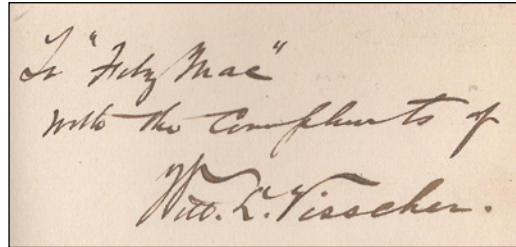 To "Fitz Mac"
with the Compliments of
Will. L. Visscher.